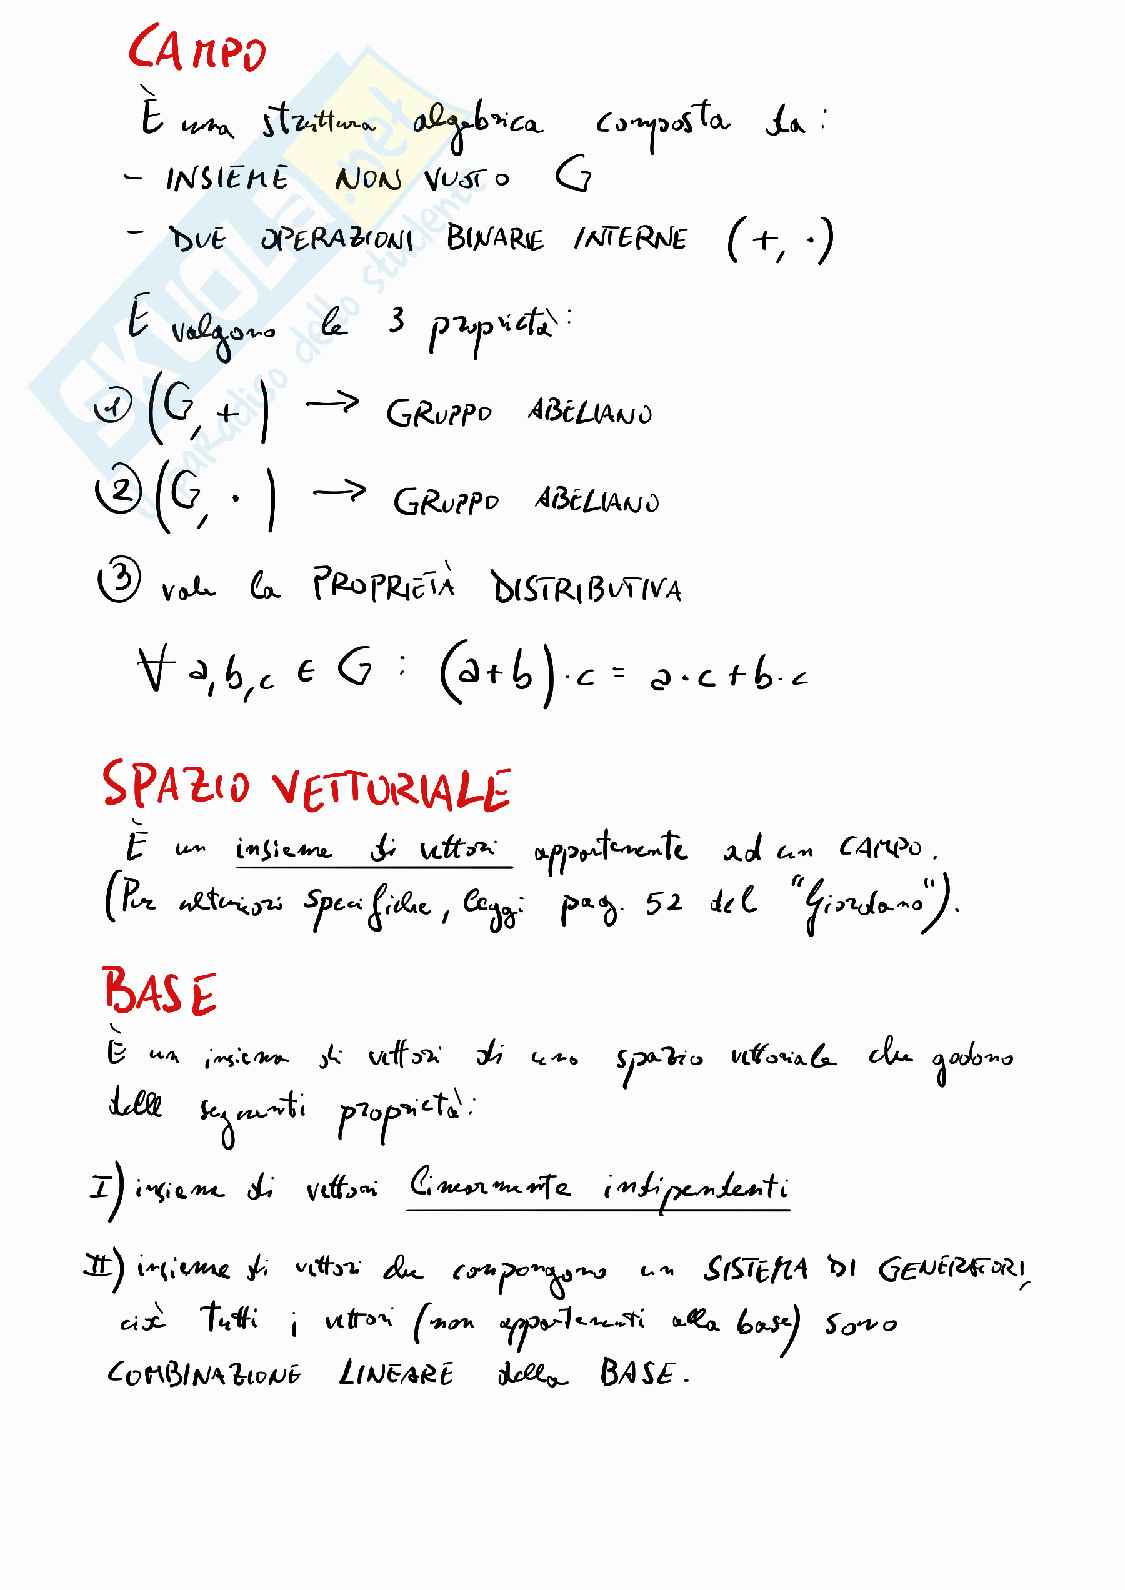 CAMPO
È una struttura algebrica composta da:
- INSIEME NON VUOTO G
- DUE OPERAZIONI BINARIE INTERNE (+, ·)
E valgono le 3 proprietà:
① (G, +) → GRUPPO ABELIANO
② (G, ·) → GRUPPO ABELIANO
③ vale la PROPRIETÀ DISTRIBUTIVA
∀ a, b, c ∈ G : (a+b)·c = a·c + b·c
SPAZIO VETTORIALE
È un insieme di vettori appartenente ad un CAMPO.
(Per ulteriori specifiche, leggi pag. 52 del "Giordano").
BASE
È un insieme di vettori di uno spazio vettoriale che godono
delle seguenti proprietà:
I) insieme di vettori linearmente indipendenti
II) insieme di vettori che compongono un SISTEMA DI GENERATORI,
cioè tutti i vettori (non appartenenti alla base) sono
COMBINAZIONE LINEARE della BASE.
SKUOLA.net
il paradiso dello studente